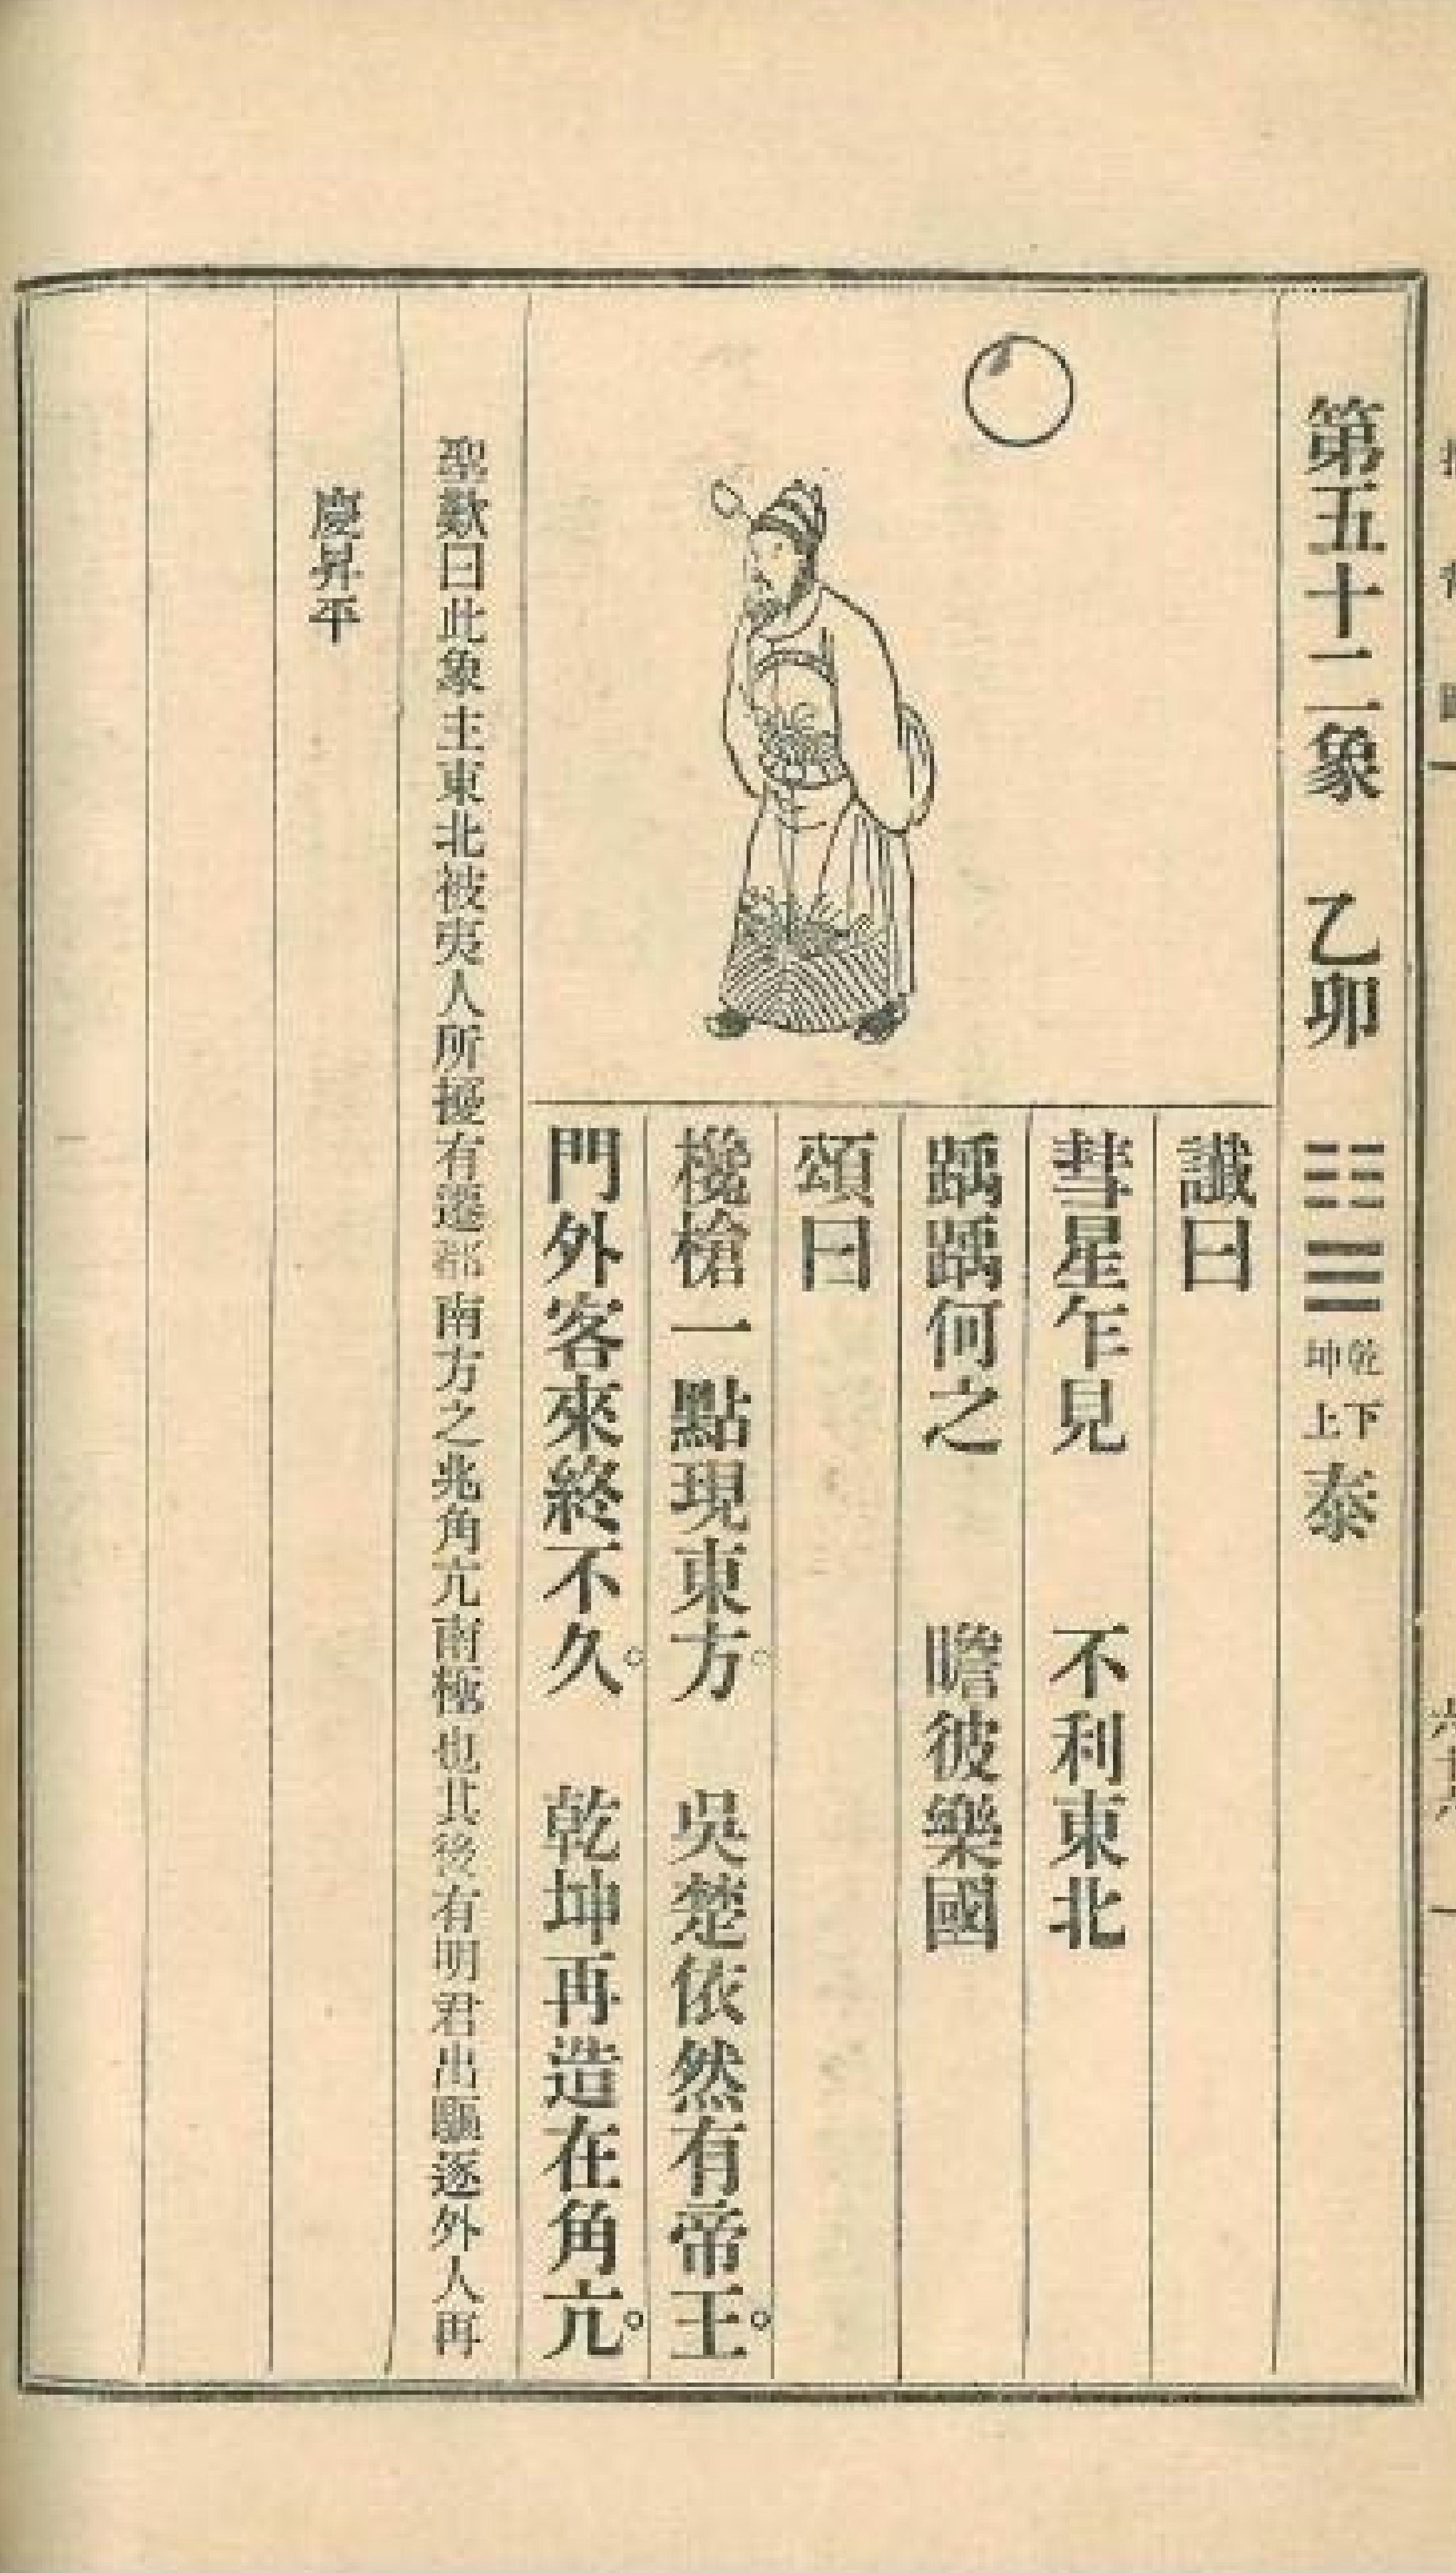 第五十二象　乙卯　乾下坤上　泰
讖曰
彗星乍見　不利東北
踽踽何之　瞻彼樂國
頌曰
欃槍一點現東方。　吳楚依然有帝王。
門外客來終不久。　乾坤再造在角亢。
聖歎曰此象主東北被夷人所擾有遷都南方之兆角亢南極也其後有明君出驅逐外人再
慶昇平